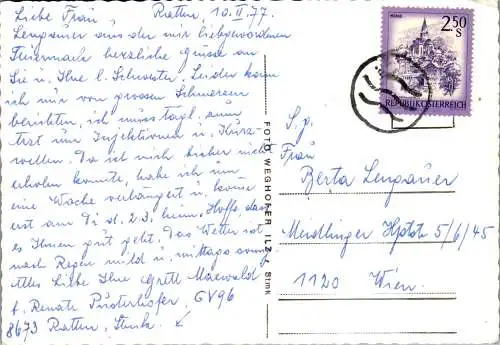 Liebe Frau Ratten, 10.II.77.
Lengauer aus der mir liebgewordenen
Steiermark herzliche Grüsse an
Sie u Ihre l. Schwester. Leider kann
ich nur von grossen Schmerzen
berichten, ich muss tägl. zum
Arzt um Injektionen u. Kurz-
wellen. Da ich mich bisher nicht
erholen konnte, habe ich um
eine Woche verlängert u komme
erst am Di d. 23. heim. Hoffe, dass
es Ihnen gut geht. Das Wetter ist
nach Regen mild u. mittags sonnig
Alles Liebe Ihre Gretl Maewald
b. Renate Pusterhofer, GV96
8673 Ratten, Stmk
FOTO WEGHOFER ILZ / Stmk
2.50
S
REPUBLIK ÖSTERREICH
S. g.
Frau
Berta Lengauer
Meidlinger Hptstr 5/6/45
1120 Wien